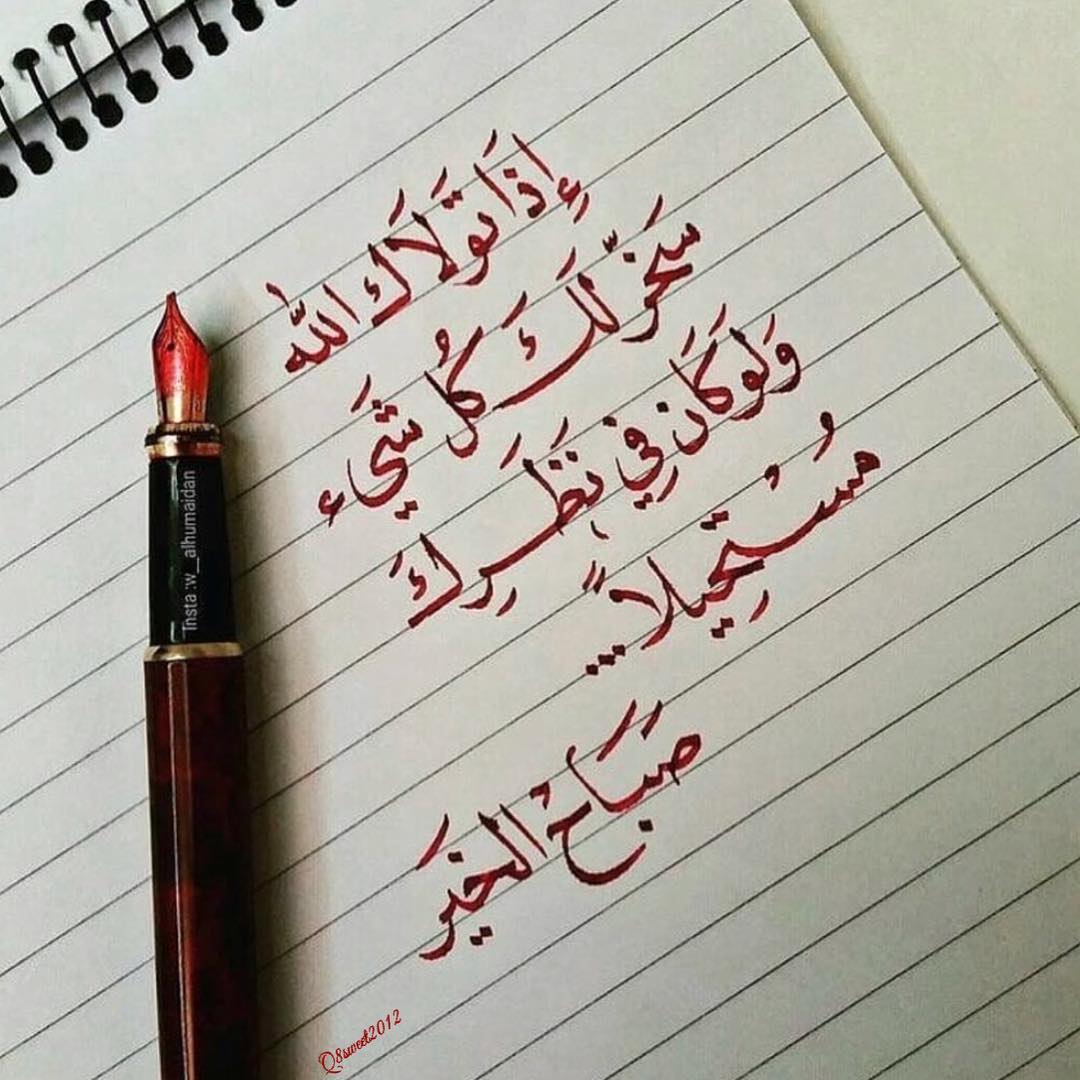 إِذَا تَولَاَك الله
سَخّر لَكَ كُل شَيء
وَلَو كَانَ فِي نَظَرِكَ
مُستُحِيلاً...
صَبَاحْ الخَير
Insta :w_alhumaidan
Q8sweet2012